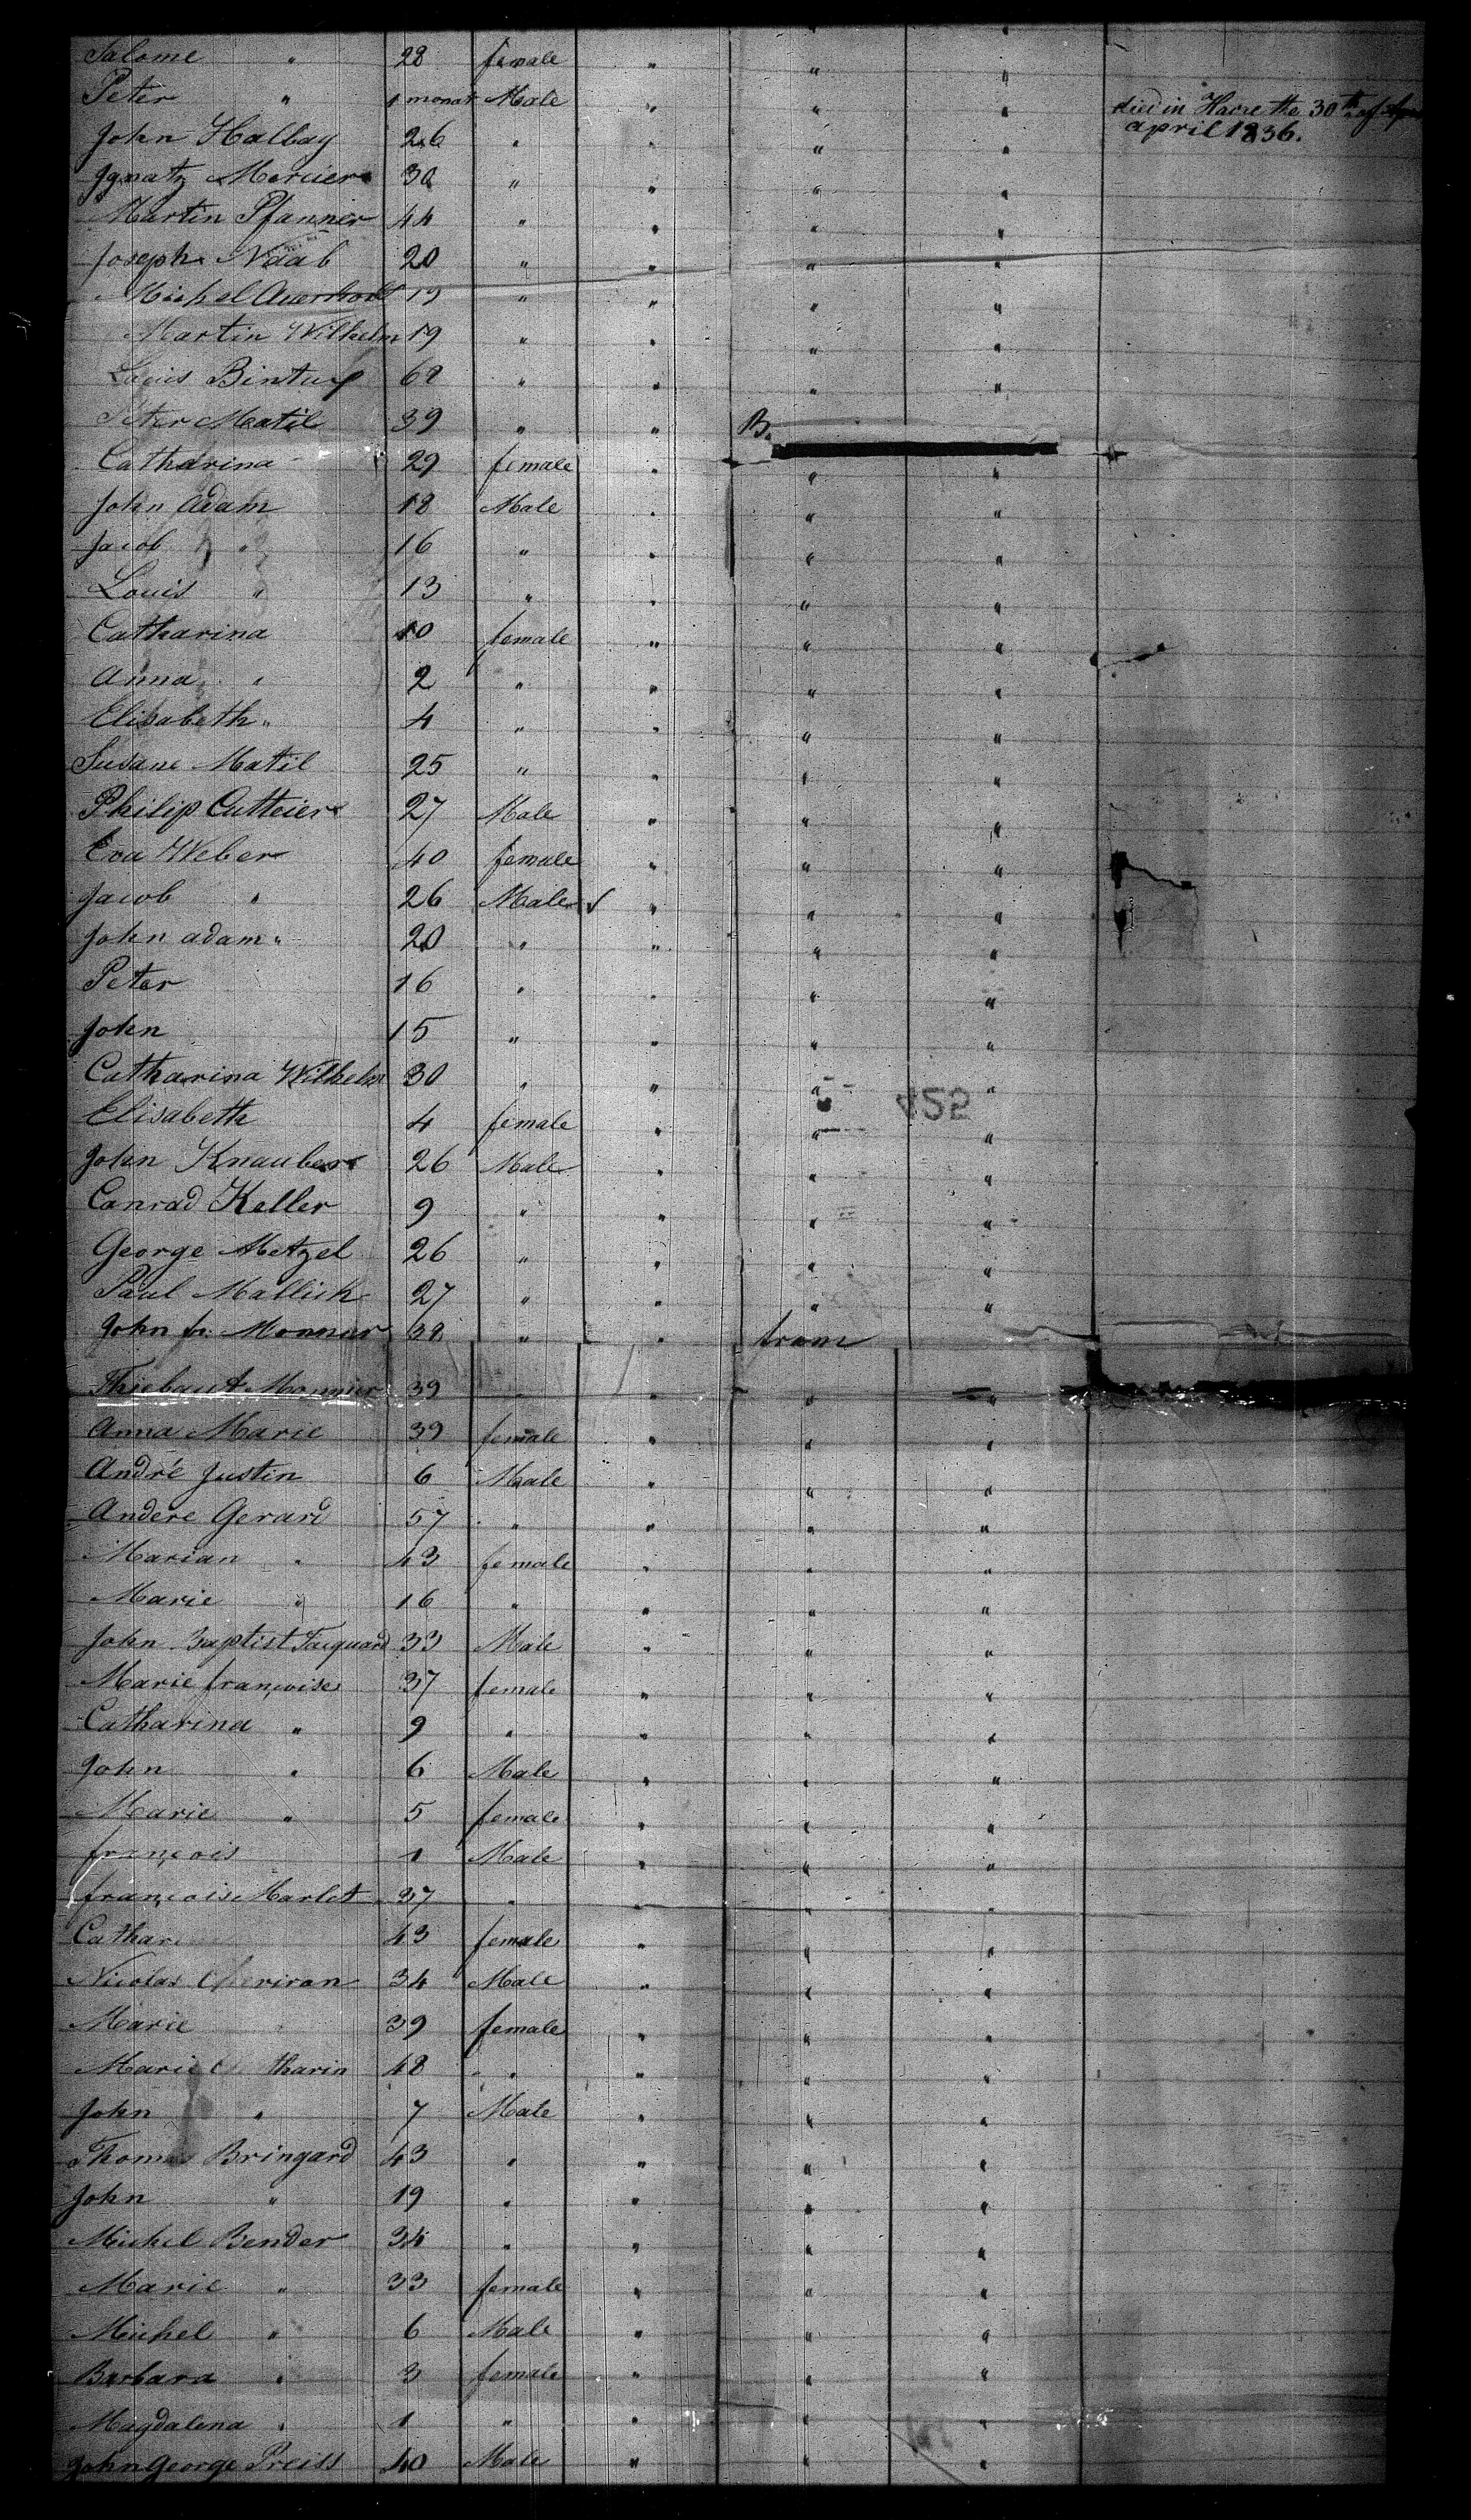 Salome " 28 female " " "
Peter " 1 monat Male " " " died in Havre the 30th of
april 1836.
John Halbay 26 " " " "
Ignatz Mercier 30 " " " "
Martin Pfanner 44 " " " "
Joseph Naab 20 " " " "
Michel 19 " " " "
Martin Wilhelm 19 " " " "
Louis 68 " " " "
Peter Matil 39 " " B.
Catharina 29 female " " "
John Adam 18 Male " " "
Jacob " 16 " " " "
Louis " 13 " " " "
Catharina 10 female " " "
Anna " 2 " " " "
Elisabeth " 4 " " " "
Susane Matil 25 " " " "
Philip 27 Male " " "
Eva Weber 40 female " " "
Jacob " 26 Male " " "
John adam " 20 " " " "
Peter 16 " " " "
John 15 " " " "
Catharina Wilhelm 30 " " " "
Elisabeth 4 female " " "
John Knauber 26 Male " " "
Conrad Keller 9 " " " "
George Metzel 26 " " " "
Paul Mallick 27 " " " "
John fr. Monnier 38 " "
Thiebaut Monnier 39 " " "
Anna Marie 39 female " " "
André Justin 6 Male " " "
Andere Gerard 57 " " " "
Marian " 43 female " " "
Marie " 16 " " " "
John Baptist Jacquard 33 Male " " "
Marie françoise 37 female " " "
Catharina " 9 " " " "
John " 6 Male " " "
Marie " 5 female " " "
françois 1 Male " " "
françois Marlot 37 " " " "
Cathar 43 female " " "
Nicolas 34 Male " " "
Marie 39 female " " "
Marie 48 " " " "
John " 7 Male " " "
Thomas Bringard 43 " " " "
John " 19 " " " "
Michel Bender 34 " " " "
Marie " 33 female " " "
Michel " 6 Male " " "
Barbara " 3 female " " "
Magdalena " 1 " " " "
John George Preiss 40 Male " " "